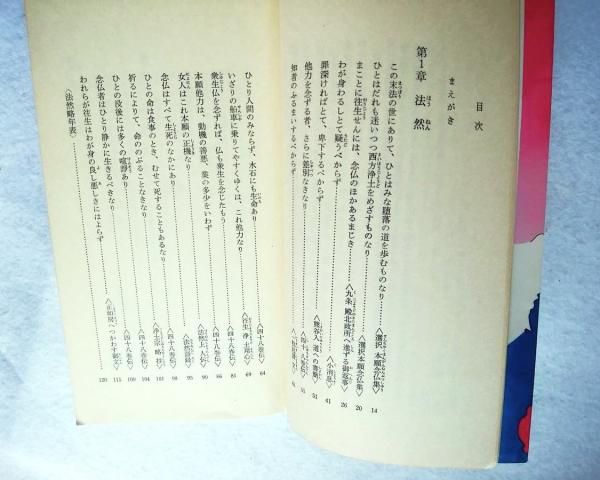 目次
まえがき
第1章 法然
この末法の世にありて、ひとはみな堕落の道を歩むものなり……〈選択本願念仏集〉 14
ひとはだれも迷いつつ西方浄土をめざすものなり……〈選択本願念仏集〉 20
まことに往生せんには、念仏のほかあるまじき……〈九条殿北政所へ進ずる御返事〉 26
わが身わるしとて疑うべからず……〈小消息〉 41
罪深ければとて、卑下するべからず……〈熊谷入道への書簡〉 51
他力を念ずる者、さらに差別なきなり……〈四十八巻伝〉 55
知者のふるまいするべからず
ひとり人間のみならず、木石にも生命あり……〈四十八巻伝〉 64
いざりの船車に乗りてやすくゆくは、これ他力なり……〈往生浄土用心〉 69
衆生仏を念ずれば、仏も衆生を念じたもう……〈四十八巻伝〉 81
本願他力は、動機の善悪、業の多少をいわず……〈四十八巻伝〉 86
女人はこれ本願の正機なり……〈法然上人伝〉 90
念仏はすべて生死のなかにあり……〈法然語録〉 95
ひとの命は食事のとき、むせて死することもあるなり……〈四十八巻伝〉 98
祈るによりて、命ののぶることなきなり……〈浄土宗略抄〉 102
ひとの没後には多くの喧諍あり……〈四十八巻伝〉 104
念仏者はひとり静かに生きるべきなり……〈四十八巻伝〉 109
われらが往生はわが身の良し悪しきにはよらず……〈正如房へつかわす御文〉 111
〈法然略年表〉…… 120